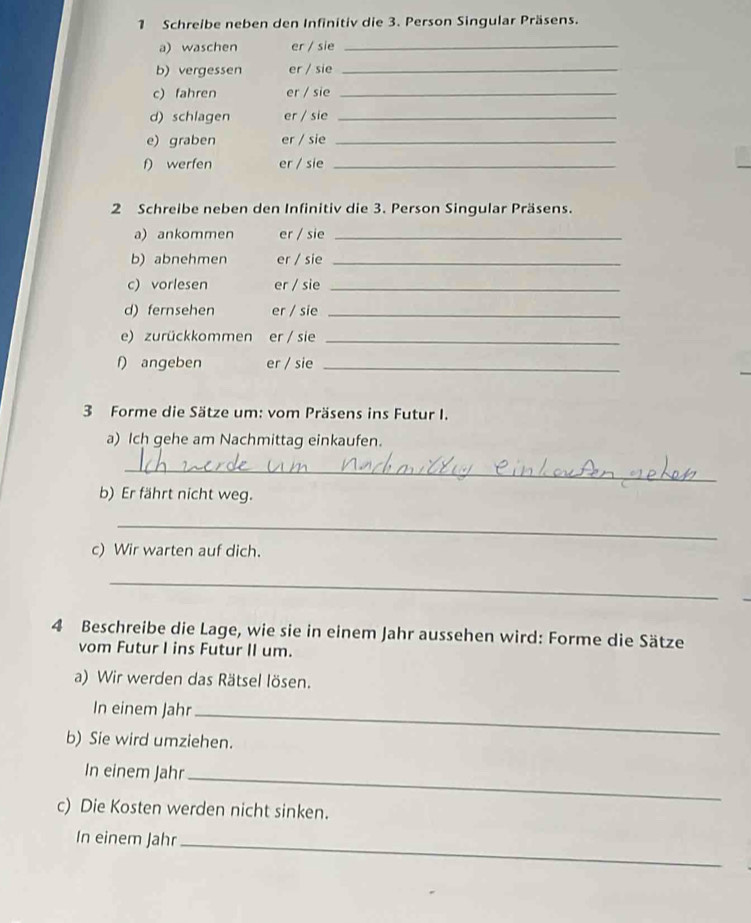 1 Schreibe neben den Infinitiv die 3. Person Singular Präsens.
a) waschen er / sie
b) vergessen er / sie
c) fahren er / sie
d) schlagen er / sie
e) graben er / sie
f) werfen er / sie
2 Schreibe neben den Infinitiv die 3. Person Singular Präsens.
a) ankommen er / sie
b) abnehmen er / sie
c) vorlesen er / sie
d) fernsehen er / sie
e) zurückkommen er / sie
f) angeben er / sie
3 Forme die Sätze um: vom Präsens ins Futur I.
a) Ich gehe am Nachmittag einkaufen.
Ich werde um Nachmittag einkaufen gehen
b) Er fährt nicht weg.
c) Wir warten auf dich.
4 Beschreibe die Lage, wie sie in einem Jahr aussehen wird: Forme die Sätze
vom Futur I ins Futur II um.
a) Wir werden das Rätsel lösen.
In einem Jahr
b) Sie wird umziehen.
In einem Jahr
c) Die Kosten werden nicht sinken.
In einem Jahr